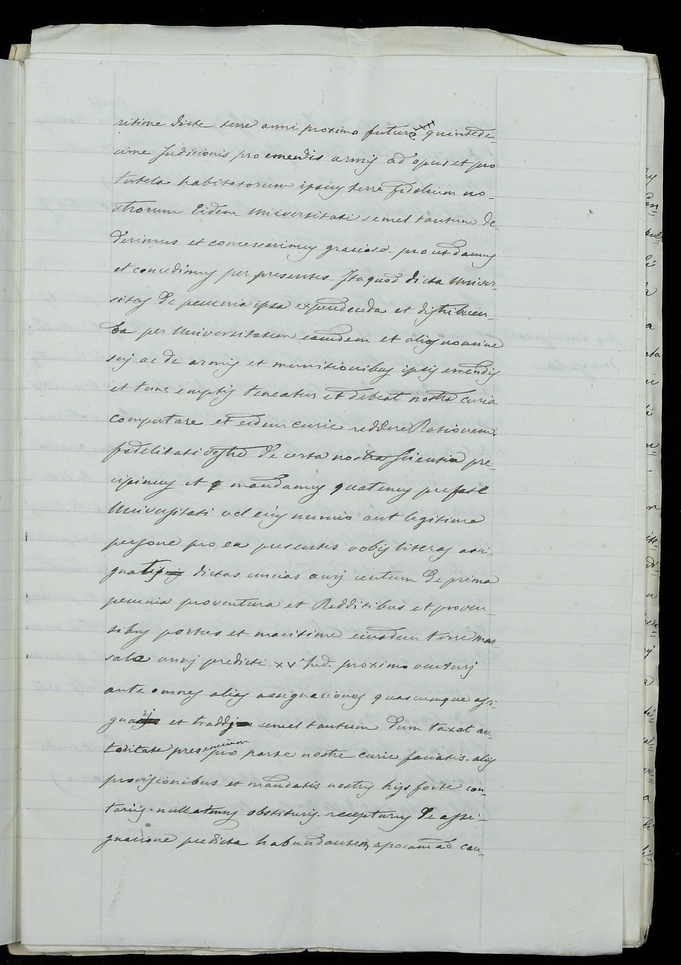 ritime dicte terre anni proximo futuro xv quintede-
cime Inditionis pro emendis armis ad opus et pro
tutela habitatorum ipsius terre fidelium no-
strorum Eidem Universitati semel tantum de
derimus et concesserimus graciose. pro ut damus
et concedimus per presentes. Itaquod dicta Univer-
sitas de pecunia ipsa expendenda et distribuen-
da per Universitatem eamdem et alios nomine
suj ac de armis et munitionibus ipsis emendis
et tunc emptis teneatur et debeat nostra curia
computare et eidem curie reddere Rationem.
fidelitati vestre de certa nostra scientia pre
cipimus et mandamus quatenus prefate
Universitati vel eius nuncio aut legitime
persone pro ea presentes vobis literas assi
gnatis dictas uncias auri centum de prima
pecunia proventura et Redditibus et proven-
tibus portus et maritime eiusdem terre mar-
sale annj predicti xv Ind. proximo venturj
ante omnes alias assignaciones quascumque assi-
gnatis et tradatis semel tantum dum taxat au-
toritate presencium pro parte nostre curie faciatis. aliis
provisionibus et mandatis nostris hijs forte con-
trarijs nullatenus obstituris. recepturis de assi-
gnacione predicta habundantem apocam ad cau-